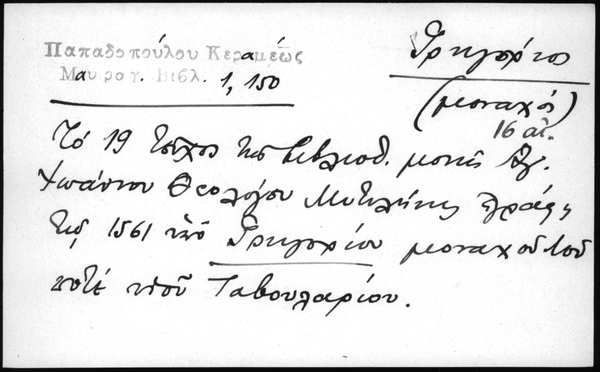 Παπαδοπούλου Κεραμέως
Μαυρογ. Βιβλ. 1, 150
Γρηγόριος
(μοναχός)
16 αι.
Τό 19 τεῦχος της βιβλιοθ. μονης Ἁγ.
Ἰωάννου Θεολόγου Μυτιλήνης
τῳ 1561 ὑπό Γρηγορίου μοναχοῦ του
ποτέ Ταβουλαρίου.